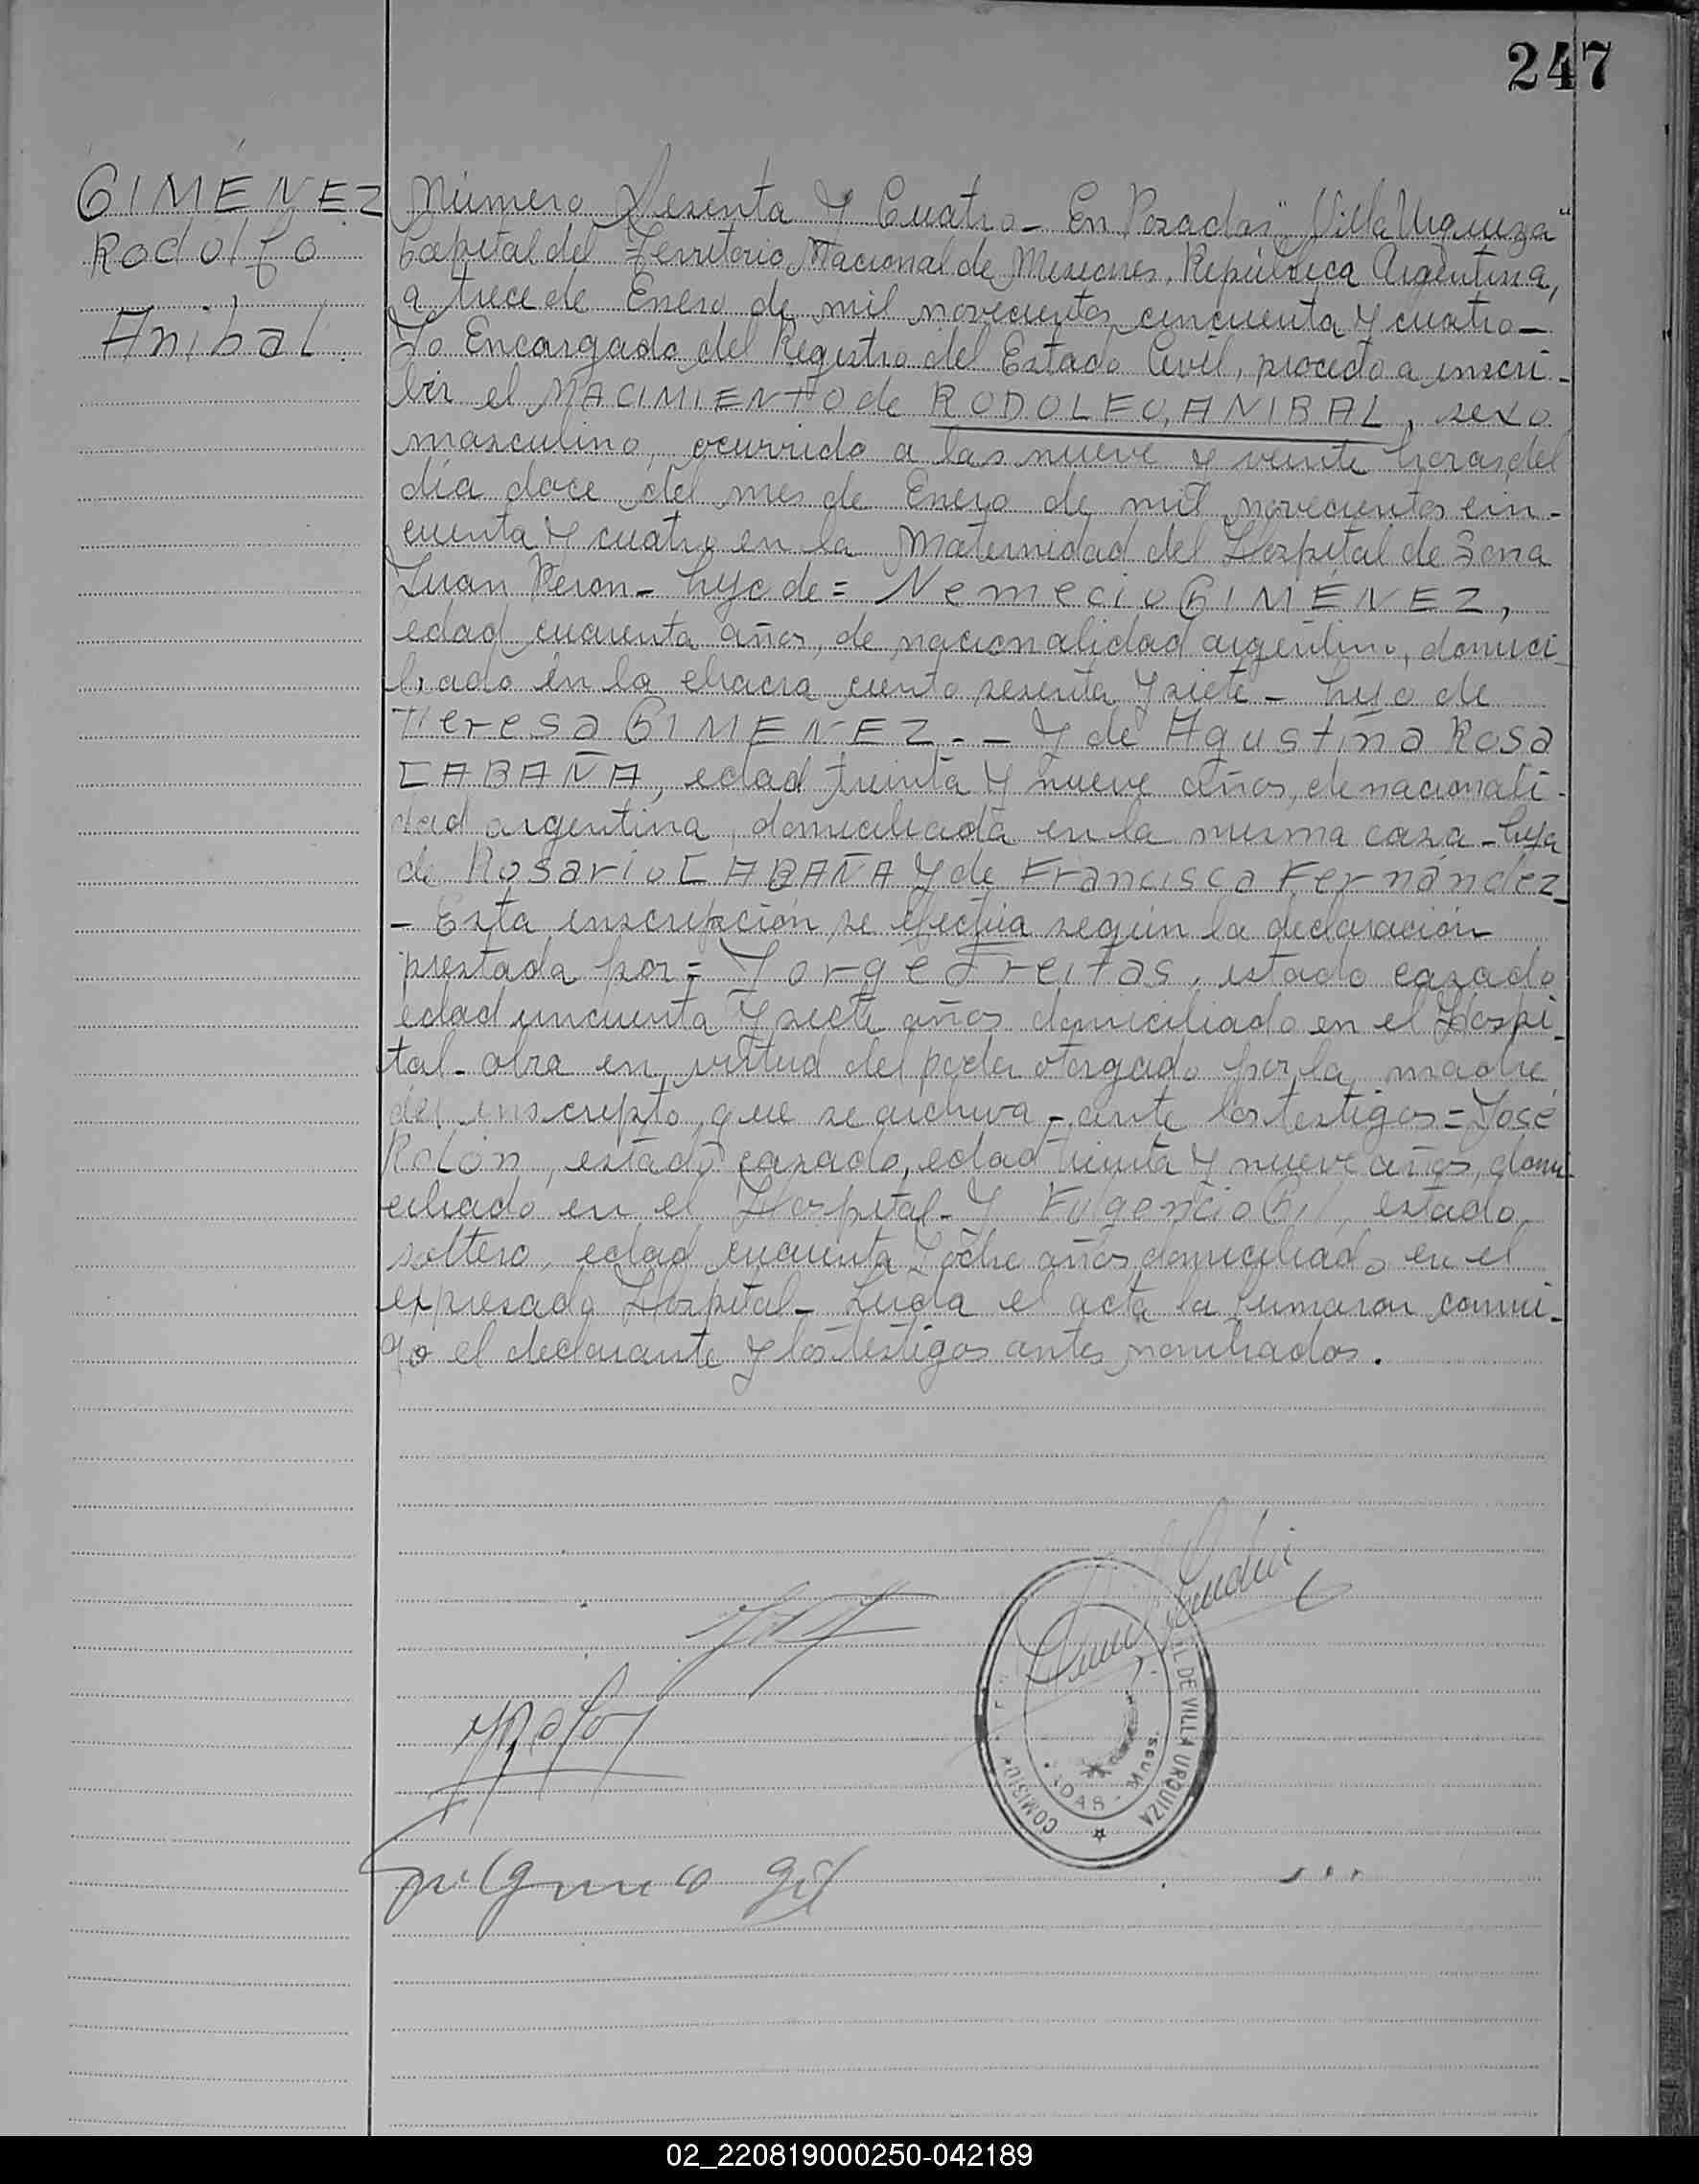 247
GIMÉNEZ
Rodolfo
Anibal.
Número Sesenta Y Cuatro - En Posadas "Villa Urquiza"
Capital del Territorio Nacional de Misiones, República Argentina,
a trece de Enero de mil novecientos cincuenta y cuatro -
Yo Encargado del Registro del Estado Civil, procedo a inscri-
bir el NACIMIENTO de RODOLFO, ANIBAL, sexo
masculino, ocurrido a las nueve y veinte horas, del
día doce del mes de Enero de mil novecientos cin-
cuenta y cuatro en la Maternidad del Hospital de Zona
Juan Peron - hijo de = Nemecio GIMÉNEZ,
edad cuarenta años, de nacionalidad argentino, domici-
liado en la chacra ciento sesenta y siete - hijo de
Teresa GIMENEZ. - Y de Agustina Rosa
CABAÑA, edad treinta y nueve años, de nacionali-
dad argentina, domiciliada en la misma casa - hija
de Rosario CABAÑA y de Francisca Fernández
- Esta inscripción se efectúa según la declaración
prestada por = Jorge Freitas, estado casado
edad cincuenta y siete años domiciliado en el Hospi-
tal - obra en virtud del poder otorgado por la madre
del inscripto que se archiva - ante los testigos = José
Rolón, estado casado, edad treinta y nueve años, domi-
ciliado en el Hospital - Y Fulgencio Gil, estado
soltero, edad cuarenta y ocho años domiciliado en el
expresado Hospital - Leída el acta la firmaron conmi-
go el declarante y los testigos antes nombrados.
COMISIO IL DE VILLA URQUIZA
ADAS - Mnes.
Fulgencio Gil
02_220819000250-042189